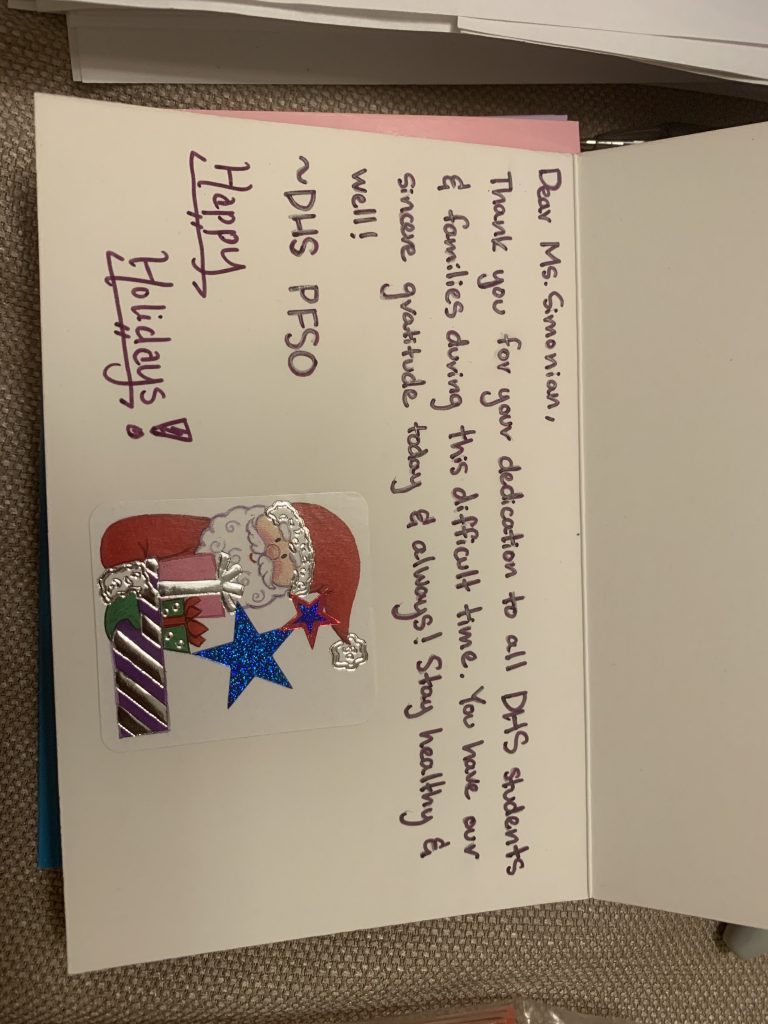 Dear Ms. Simonian,
Thank you for your dedication to all DHS students
& families during this difficult time. You have our
sincere gratitude today & always! Stay healthy &
well!
~DHS PFSO
Happy
Holidays!